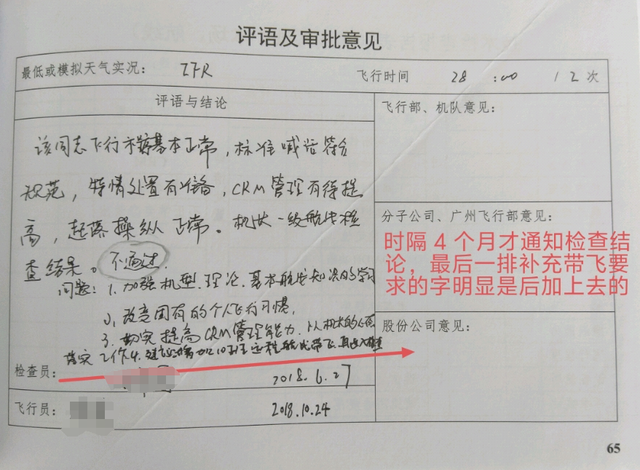 评语及审批意见
最低或模拟天气实况： IFR 飞行时间 28 :00 12次
评语与结论
飞行部、机队意见：
该同志飞行 基本正常，标准喊话符合
规范，特情处置有准备，CRM管理有待提
高，起落操纵正常。机长一级航线检
查结果。不通过
问题：1.加强机型理论，基本航线知识的学习
2.改变固有的个人飞行习惯，
3.切实提高CRM管理能力，以机长的
落实工作4. 带飞
分子公司、广州飞行部意见：
时隔 4 个月才通知检查结
论，最后一排补充带飞要
求的字明显是后加上去的
股份公司意见：
检查员： 2018.6.27
飞行员： 2018.10.24
65